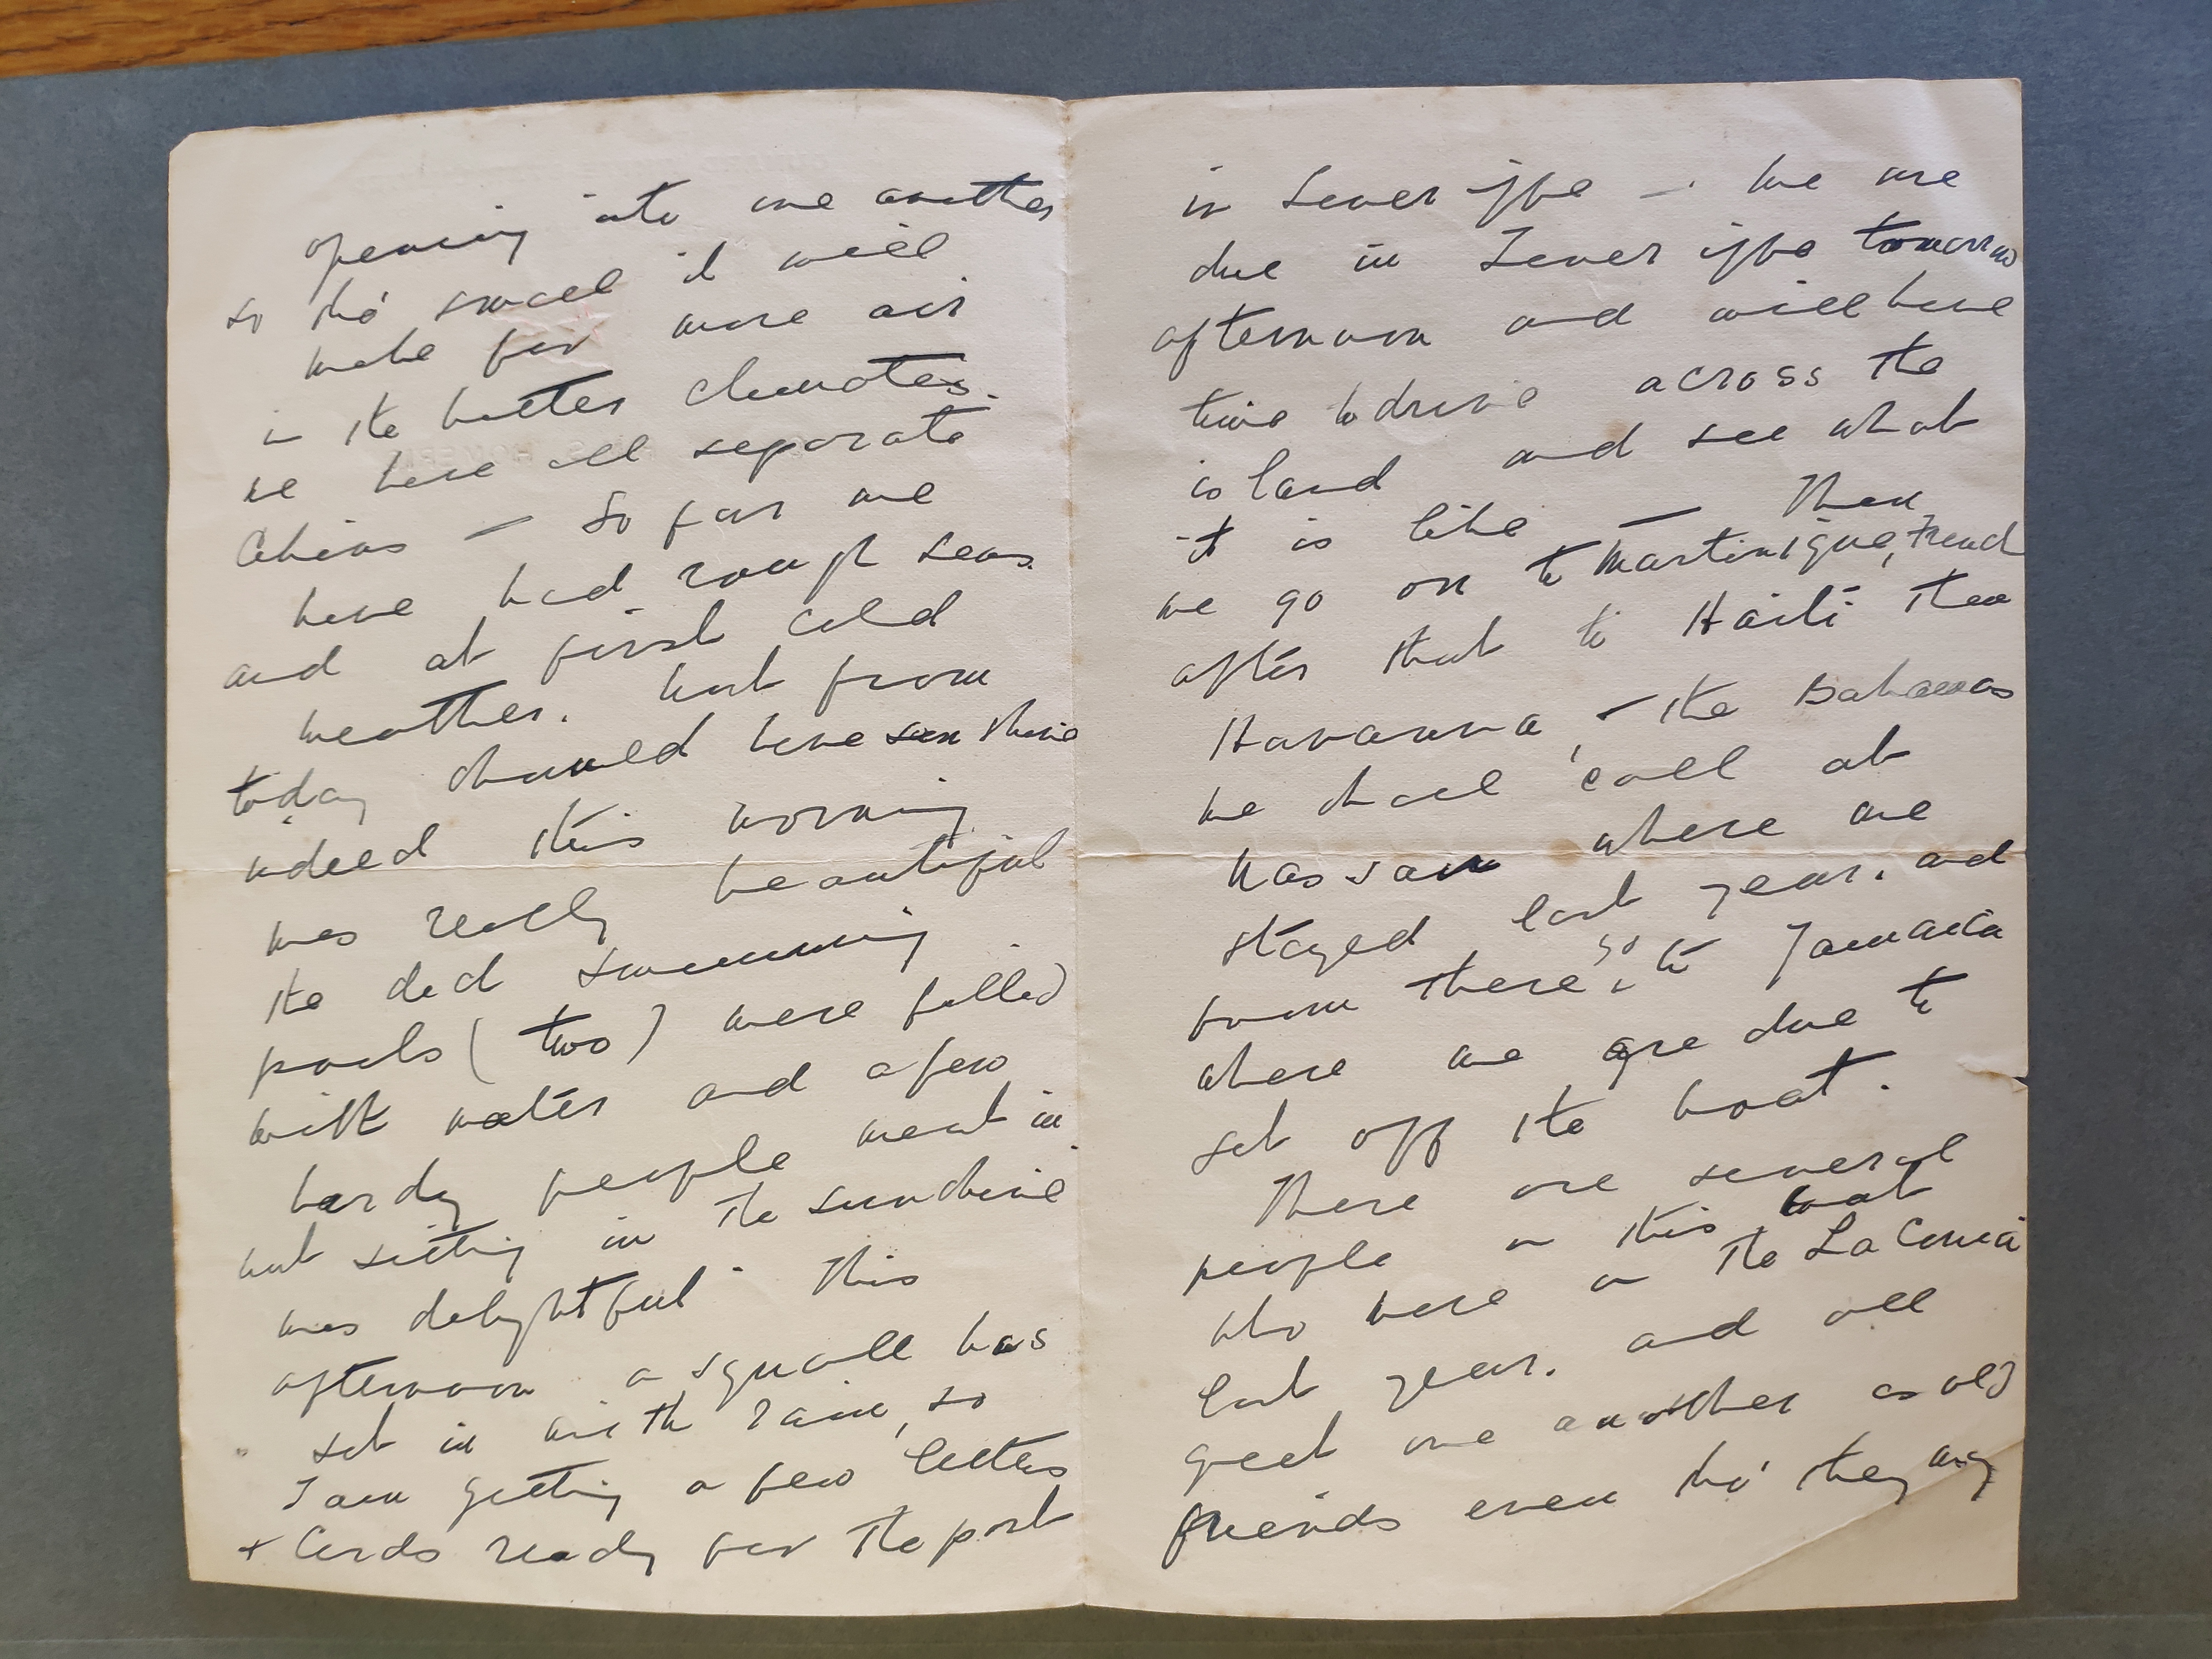 opening into one another
so tho' small it will
make for more air
in the hotter climates.
we have all separate
Cabins — So far we
have had rough seas
and at first cold
weather. but from
today should have sunshine
indeed this morning
was really beautiful
the deck swimming
pools (two) were filled
with water and a few
hardy people went in
but sitting in the sunshine
was delightful. This
afternoon a squall has
set in with rain, so
I am getting a few letters
+ Cards ready for the post
in Teneriffe — we are
due in Teneriffe tomorrow
afternoon and will have
time to drive across the
island and see what
it is like — Then
we go on to Martinique, French
after that to Haiti then
Havanna, – the Bahamas
we shall call at
Nassau where we
stayed last year. and
from there so to Jamaica
where we are due to
get off the boat.
There are several
people on this boat
who were on the La Conia
last year. and all
greet one another as old
friends even tho' they may